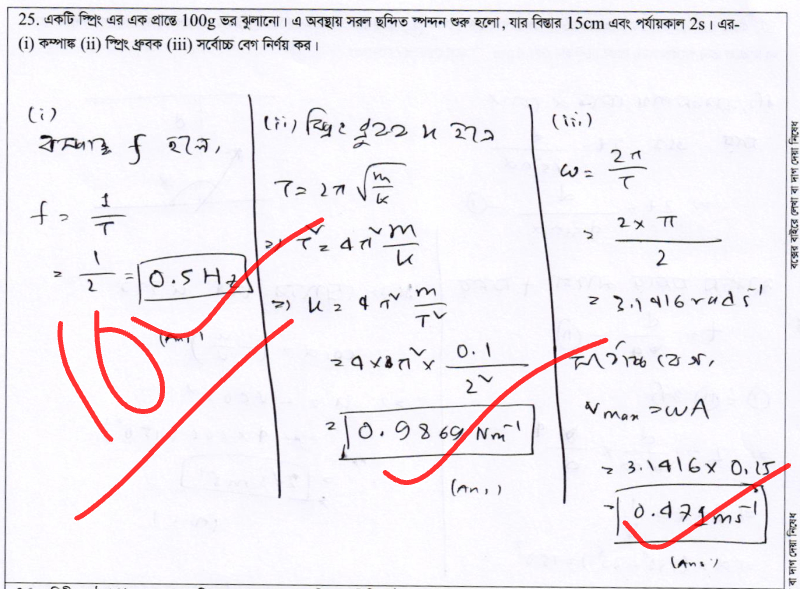 25. একটি স্প্রিং এর এক প্রান্তে 100g ভর ঝুলানো। এ অবস্থায় সরল ছন্দিত স্পন্দন শুরু হলো, যার বিস্তার 15cm এবং পর্যায়কাল 2s। এর-
(i) কম্পাঙ্ক (ii) স্প্রিং ধ্রুবক (iii) সর্বোচ্চ বেগ নির্ণয় কর।
(i)
কম্পাঙ্ক f হলে,
f = 1/T
= 1/2 = 0.5 Hz
(Ans:)
10
(ii) স্প্রিং ধ্রুবক k হলে
T = 2π √(m/k)
=> T² = 4π² m/k
=> k = 4π² m/T²
= 4×π² × 0.1/2²
= 0.9869 Nm⁻¹
(Ans:)
(iii)
ω = 2π/T
= 2×π/2
= 3.1416 rad s⁻¹
সর্বোচ্চ বেগ,
v max = ωA
= 3.1416 × 0.15
= 0.471 ms⁻¹
(Ans:)
বক্সের বাইরে লেখা বা দাগ দেয়া নিষেধ
বা দাগ দেয়া নিষেধ